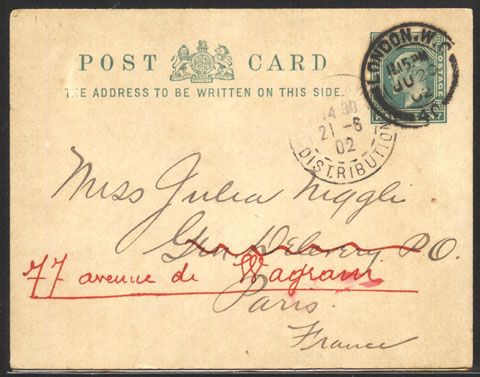 POST CARD
THE ADDRESS TO BE WRITTEN ON THIS SIDE.
LONDON. W.C.
11.15 PM
JU 2
02
POSTAGE
21 - 6
02
DISTRIBUTION
Miss Julia Niggli
Gen Delivery P.O.
77 avenue de Wagram
Paris.
France